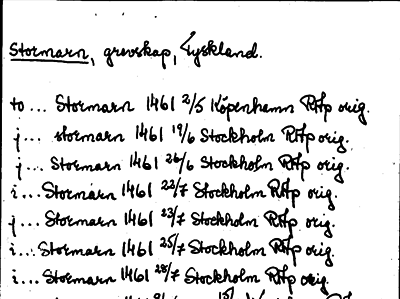 Stormarn, grevskap, Tyskland.
to... Stormarn 1461 2/5 Köpenhamn RAp orig.
j... stormarn 1461 19/6 Stockholm RAp orig.
j... Stormarn 1461 26/6 Stockholm RAp orig.
i... Stormarn 1461 22/7 Stockholm RAp orig.
j... Stormarn 1461 23/7 Stockholm RAp orig.
i... Stormarn 1461 25/7 Stockholm RAp orig.
i... Stormarn 1461 28/7 Stockholm RAp orig.